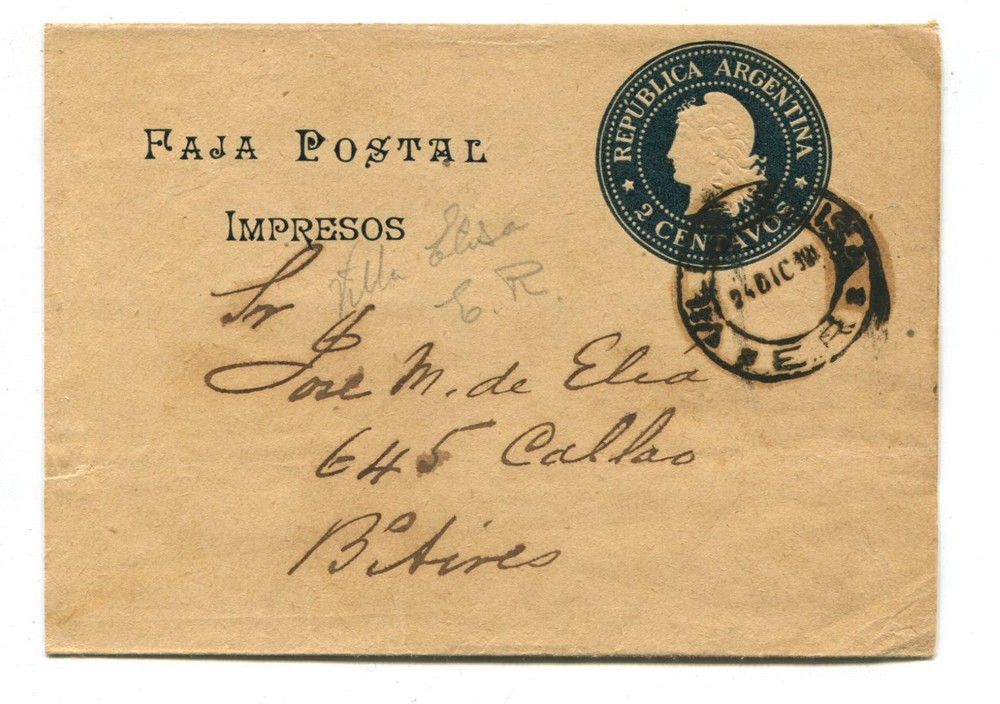 REPÚBLICA ARGENTINA
2 CENTAVOS
FAJA POSTAL
IMPRESOS
Villa Elisa
E. R.
24 DIC
E. R.
Sr
José M. de Elía
645 Callao
Bs Aires